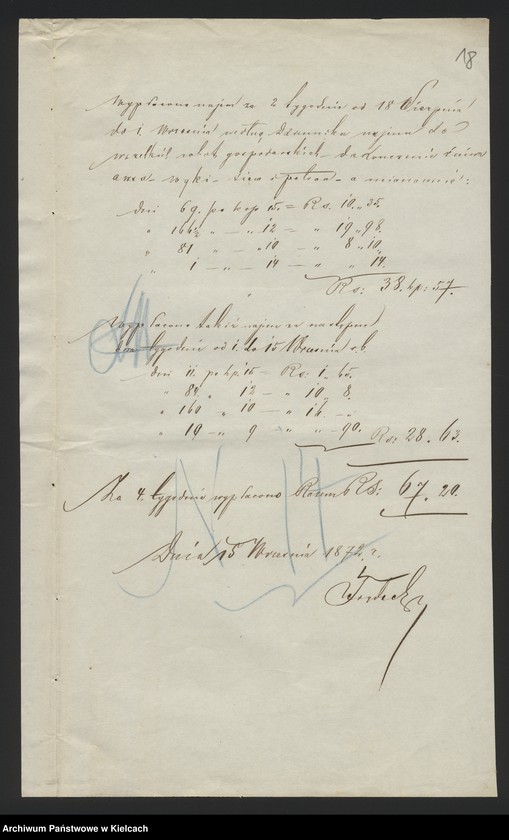 18
Wypłacono najem za 2 tygodnie od 18 Sierpnia
do 1. Września według Dziennika najmu do
wszelkich robót gospodarskich
a mianowicie:
dni 69. po kop 15. = Rs. 10. „ 35.
„ 166½ „ — „ 12 = „ 19 „ 98.
„ 81 „ — „ 10 — „ 8 „ 10.
„ 1 — „ — 14 — „ „ 14.
Rs: 38. kp: 57.
Wypłacono także najem za następne
dwa tygodnie od 1. do 15 Września r.b.
dni 11. po kp. 15 = Rs. 1. 65.
„ 84. „ 12 — „ 10. 8.
„ 160 „ 10 — „ 16. — „
„ 10 — „ 9 — „ — 90.
Rs: 28. 63.
Za 4. tygodnie wypłacono Razem RS: 67. 20.
Dnia 15 Września 1872 r.
Archiwum Państwowe w Kielcach